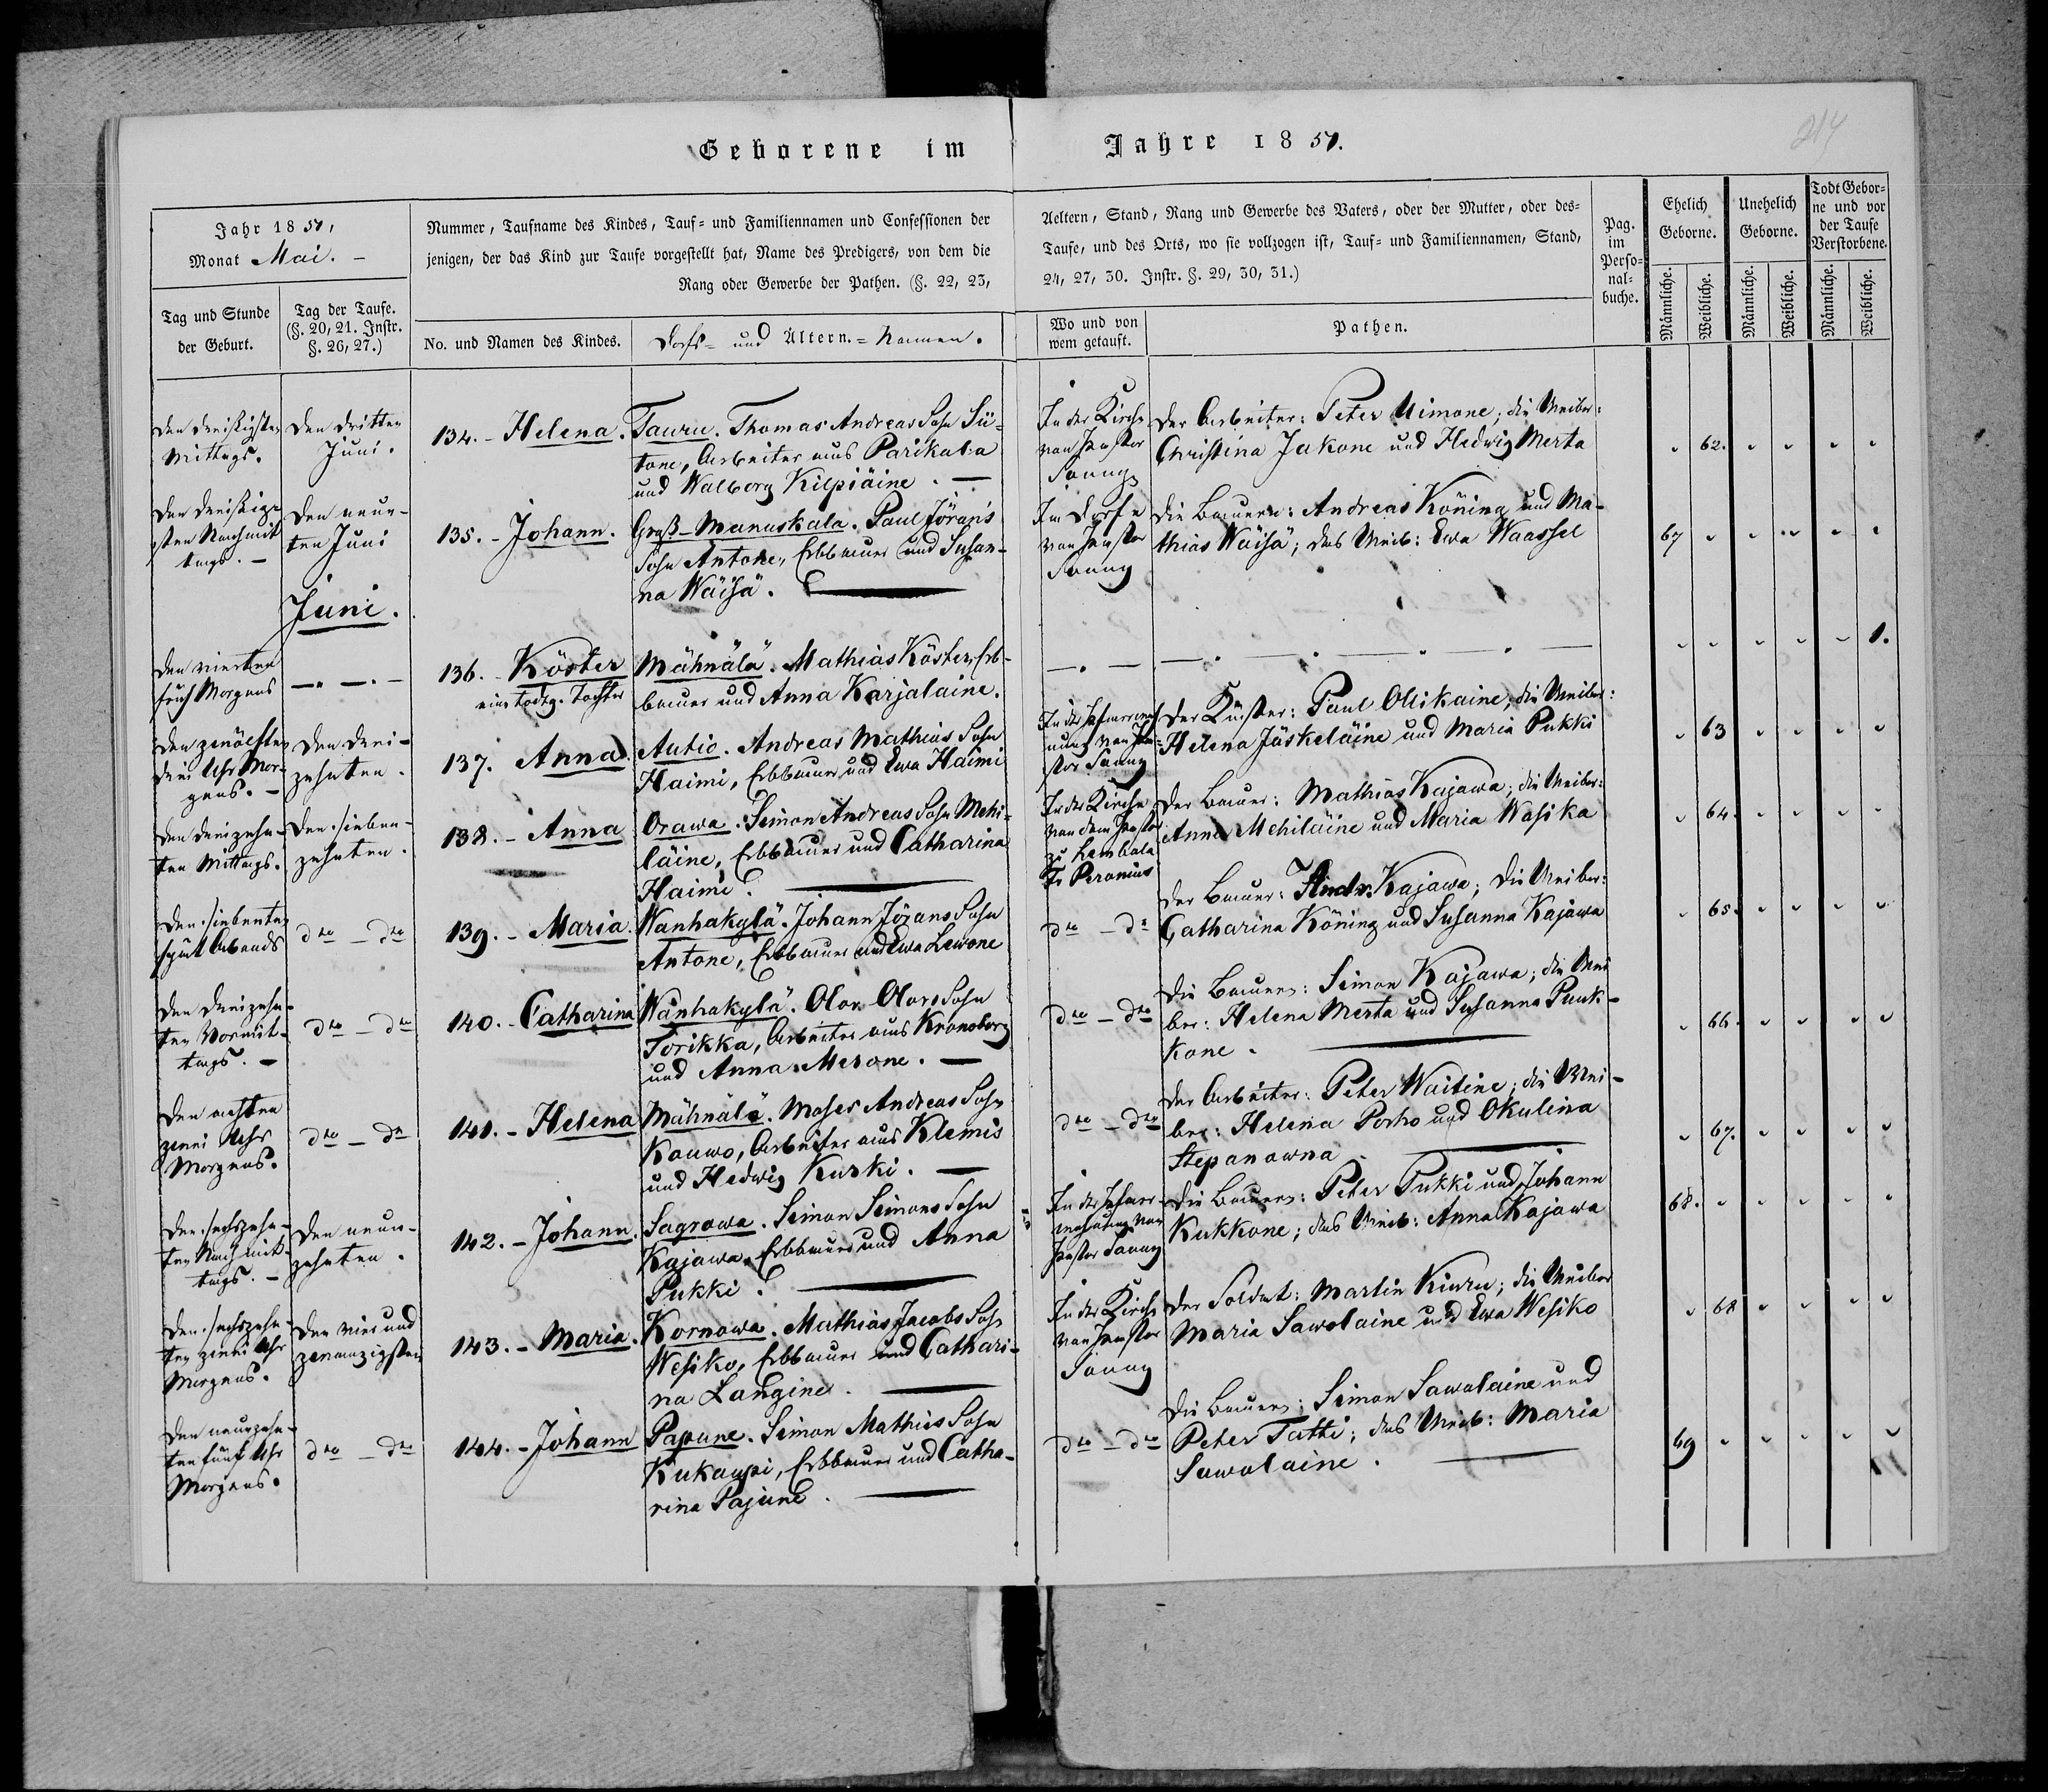 Geborene im Jahre 1851.
214
Jahr 1851,
Monat Mai. –
Nummer, Taufname des Kindes, Tauf- und Familiennamen und Confessionen der
jenigen, der das Kind zur Taufe vorgestellt hat, Name des Predigers, von dem die
Rang oder Gewerbe der Pathen. (§. 22, 23,
Aeltern, Stand, Rang und Gewerbe des Vaters, oder der Mutter, oder des-
Taufe, und des Orts, wo sie vollzogen ist, Tauf- und Familiennamen, Stand,
24, 27, 30. Instr. §. 29, 30, 31.)
Pag.
im
Perso-
nal-
buche.
Ehelich
Geborne.
Unehelich
Geborne.
Todt Gebor-
ne und vor
der Taufe
Verstorbene.
Tag und Stunde
der Geburt.
Tag der Taufe.
(§. 20, 21. Instr.
§. 26, 27.)
No. und Namen des Kindes.
Dorfs- und Ältern.- Namen.
Wo und von
wem getauft.
Pathen.
Männliche.
Weibliche.
Männliche.
Weibliche.
Männliche.
Weibliche.
Den dreißigsten
Mittags.
Den dritten
Juni.
134. – Helena.
Tauru. Thomas Andreas Sohn Sü-
tone, Arbeiter aus Parikala
und Walborg Kilpiäine. –
In der Kirche
von Pastor
Der Arbeiter: Peter Uimone; die Weiber:
Christina Jakone und Hedwig Merta
62.
Den dreißig-
sten Nachmit
tags. –
Den neun-
ten Juni
135. – Johann.
Groß-Manuskala. Paul Jörans
Sohn Antone, Erbbauer und Susan-
na Wäisä.
Im Dorfe
von Pastor
Die Bauern: Andreas Köning und Ma-
thias Wäisä; das Weib: Ewa Waassel
67
Juni.
Den vierten
früh Morgens
136. – Köster
eine todtg. Tochter
Mähnälä. Mathias Köster, Erb-
bauer und Anna Karjalaine.
1.
Den zwölften
drei Uhr Mor-
gens. –
Den drei-
zehnten.
137. Anna.
Autio. Andreas Mathias Sohn
Haimi, Erbbauer und Ewa Haimi
Der Küster: Paul Ollikaine; die Weiber:
Helena Jäskeläine und Maria Pukki
63
Den dreizehn-
ten Mittags.
Den sieben-
zehnten.
138. – Anna
Orawa. Simon Andreas Sohn Mehi-
läine, Erbbauer und Catharina
Haimi.
In der Kirche
von dem Pastor
zu Lembala
Fr Peronius
Der Bauer: Mathias Kajawa; die Weiber:
Anna Mehiläine und Maria Wasika
64.
Den siebenten
spät Abends
dto – dto
139. – Maria.
Wanhakylä. Johann Jörans Sohn
Antone, Erbbauer und Ewa Lewone
dto – dto
Der Bauer: Andr: Kajawa; die Weiber:
Catharina Köning und Susanna Kajawa
65.
Den dreizehn-
ten Vormit-
tags. –
dto – dto
140. – Catharina
Wanhakylä. Olov Olovs Sohn
Torikka, Arbeiter aus Kronoborg
und Anna Mesone. –
dto – dto
Die Bauern: Simon Kajawa; die Wei
ber: Helena Merta und Susanna Puuk-
kone.
66.
Den achten
zwei Uhr
Morgens.
dto – dto
141. – Helena
Mähnälä. Moses Andreas Sohn
Kauwo, Arbeiter aus Klemis
und Hedwig Kurki. –
dto – dto
Der Arbeiter: Peter Waitine; die Wei-
ber: Helena Porho und Okulina
Stepanowna.
67.
Den sechszehn-
ten Nachmit-
tags. –
Den neun-
zehnten.
142. – Johann.
Sagrowa. Simon Simons Sohn
Kajawa, Erbbauer und Anna
Pukki.
Die Bauern: Peter Pukki und Johann
Kukkone; das Weib: Anna Kajawa
68.
Den sechszehn-
ten zwei Uhr
Morgens.
Den vier und
zwanzigsten
143. – Maria.
Kornowa. Mathias Jacobs Sohn
Wesiko, Erbbauer und Cathari-
na Langine.
In der Kirche
von Pastor
Der Soldat: Martin Kiuru; die Weiber
Maria Sawolaine und Ewa Wesiko
68
Den neunzehn-
ten fünf Uhr
Morgens.
dto – dto
144. – Johann
Papune. Simon Mathias Sohn
Kukauppi, Erbbauer und Catha-
rina Pajune.
dto – dto
Die Bauern: Simon Sawolaine und
Peter Tatti; das Weib: Maria
Sawolaine.
69